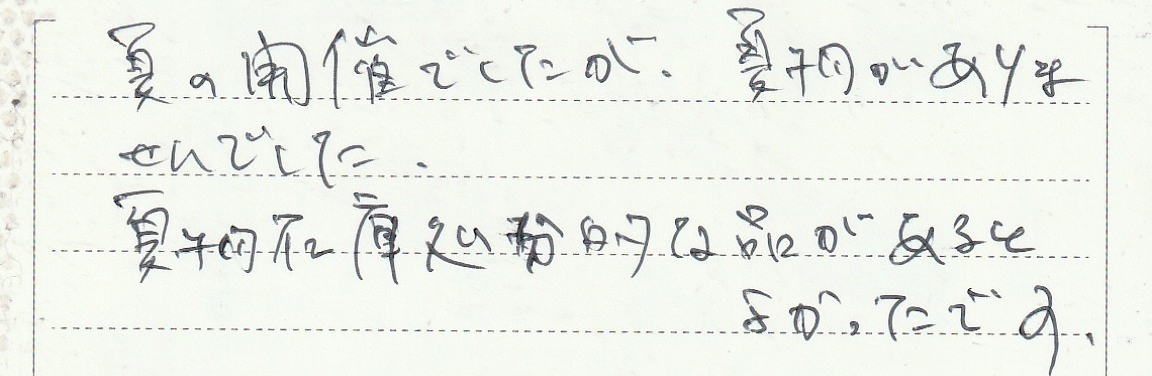 夏の開催でしたが、夏物がありま
せんでした.
夏物在庫処分的な品があると
よかったです、